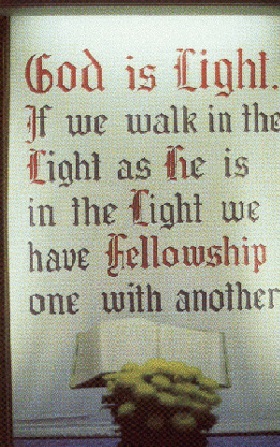 God is Light.
If we walk in the
Light as He is
in the Light we
have Fellowship
one with another